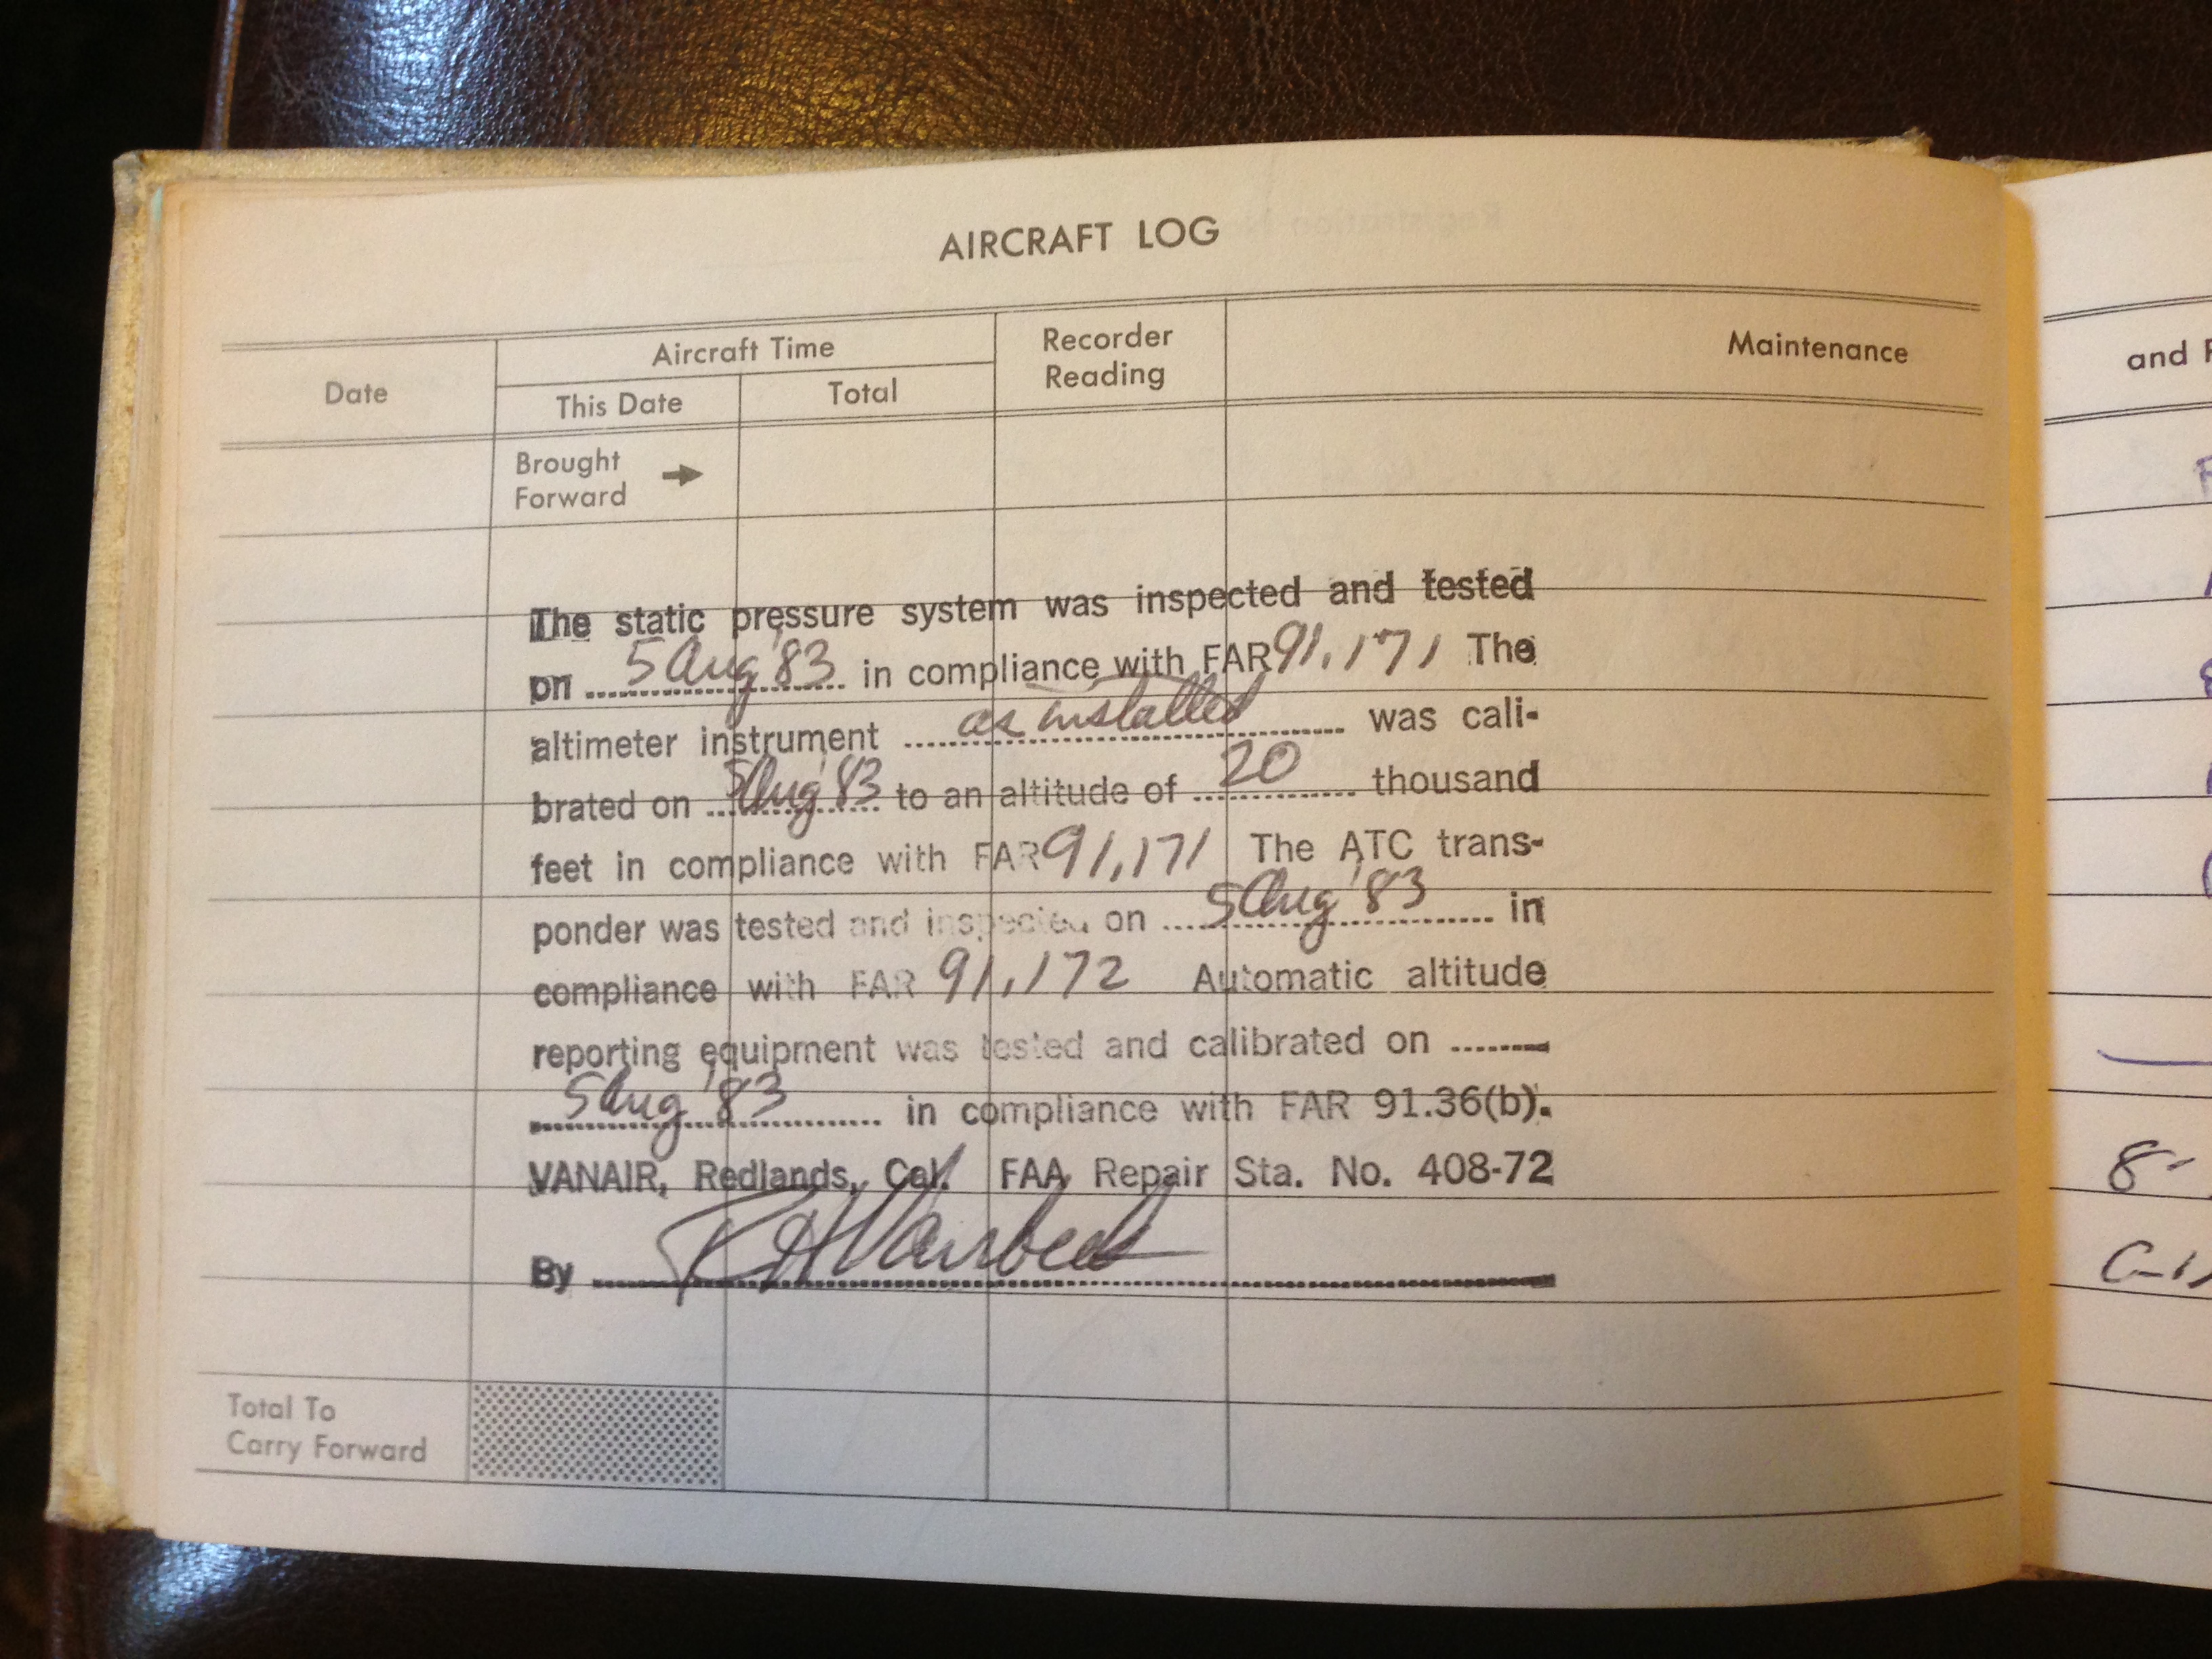 AIRCRAFT LOG
Date
Aircraft Time
This Date
Total
Recorder
Reading
Maintenance
and
Brought
Forward
The static pressure system was inspected and tested
on 5 Aug '83 in compliance with FAR 91.171 The
altimeter instrument as installed was cali-
brated on 5 Aug '83 to an altitude of 20 thousand
feet in compliance with FAR 91.171 The ATC trans-
ponder was tested and inspected on 5 Aug '83 in
compliance with FAR 91.172 Automatic altitude
reporting equipment was tested and calibrated on
5 Aug '83 in compliance with FAR 91.36(b).
VANAIR, Redlands, Cal. FAA Repair Sta. No. 408-72
By
Total To
Carry Forward